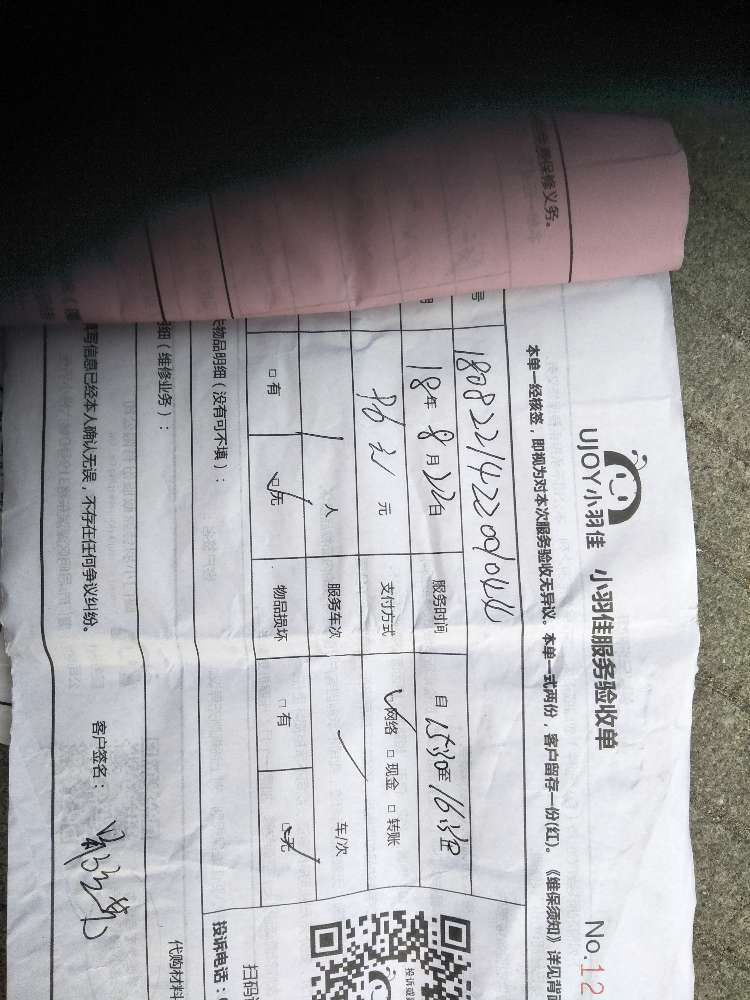 保修义务。
UJOY小羽佳 小羽佳服务验收单 No.12
本单一经核签，即视为对本次服务验收无异议。本单一式两份，客户留存一份(红)。《维保须知》详见背
号
18年8月22日 服务时间 自15:30至16:30
元 支付方式 ☑网络 □现金 □转账
人 服务车次 车/次
□有 ☑无 物品损坏 □有 ☑无
物品明细（没有可不填）：
细（维修业务）：
写信息已经本人确认无误，不存在任何争议纠纷。 客户签名：
投诉或
扫码
投诉电话：
代购材料